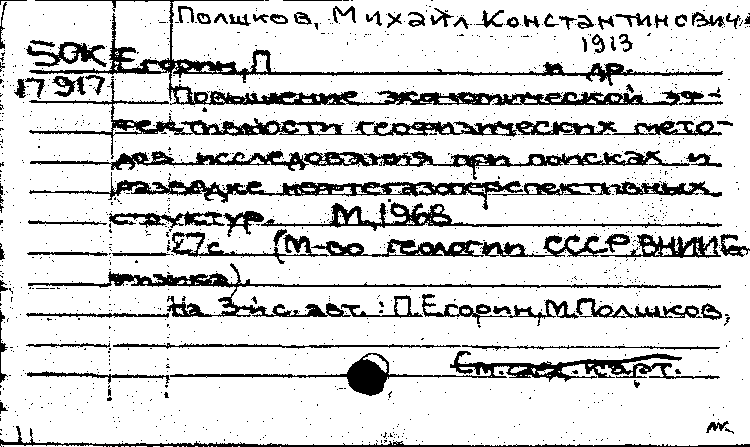 Полшков, Михайл Константинович
1913
50К Егорин, П и др.
17917 Повышение экономической эф-
фективности геофизических мето-
дов исследования при поисках и
разведке нефтегазоперспективных
структур. М, 1968
27с. (М-во геологии СССР. ВНИИГео-
физика).
На 3-й с. авт. : П. Егорин, М. Полшков,
См. след. карт.